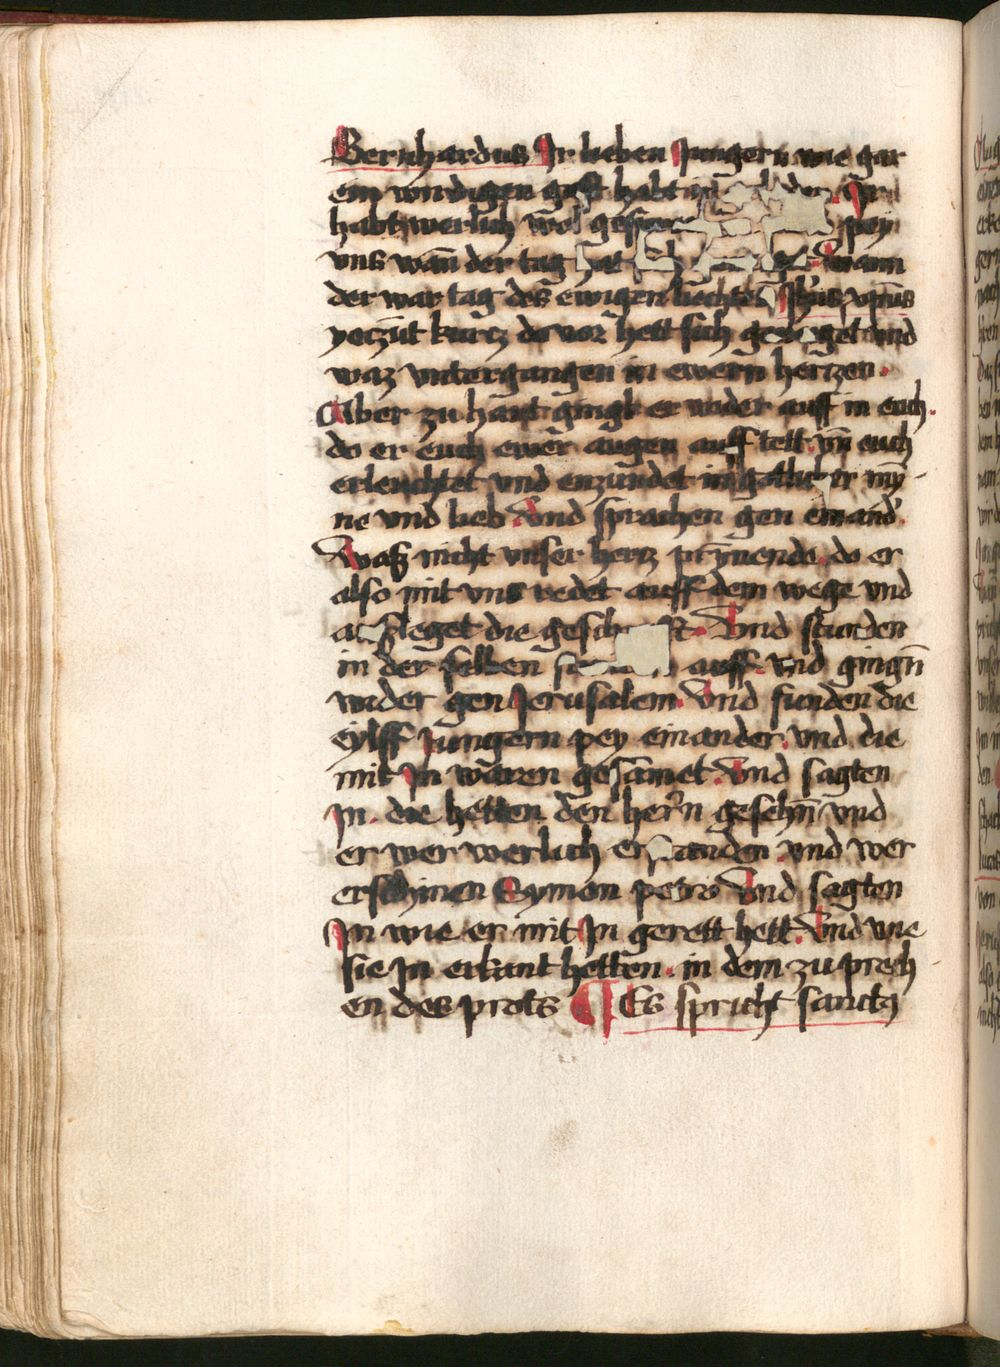 Bernhardus Ir lieben Jungern wie gar
ein wirdigen gast habt
habt werlich wol pey
vns wañ der tag hat wann
der war tag des ewigen liechtes xp̄us
yeczut kurcz do vor hett sich geneyget vnd
waz vntergangen in ewern herczen.
Aber zu hant gingk er wider auff in euch.
do er euch ewer augen auff tett vn̄ euch
erleuchtet vnd enzundet in gotlicher my̅
ne vnd lieb Vnd sprachen gen einand'.
Waß nicht vnser hercz prynnende do er
also mit vns redet auff dem wege vnd
außleget die geschrift. Vnd stunden
in der selben auff vnd gingn̄
wider gen Jerusalem. Vnd funden die
eylff Jungern pey einander. vnd die
mit Jn waren gesamet. Vnd sagten
Jn. die hetten den herrn gesehn̄ vnd
er wer werlich erstanden vnd wer
erschinen Symon petro Vnd sagten
Jn wie er mit Jn gerett hett. Vnd wie
sie Jn erkant hetten. in dem zu prech
en des prots ¶ Es spricht sanctꝯ